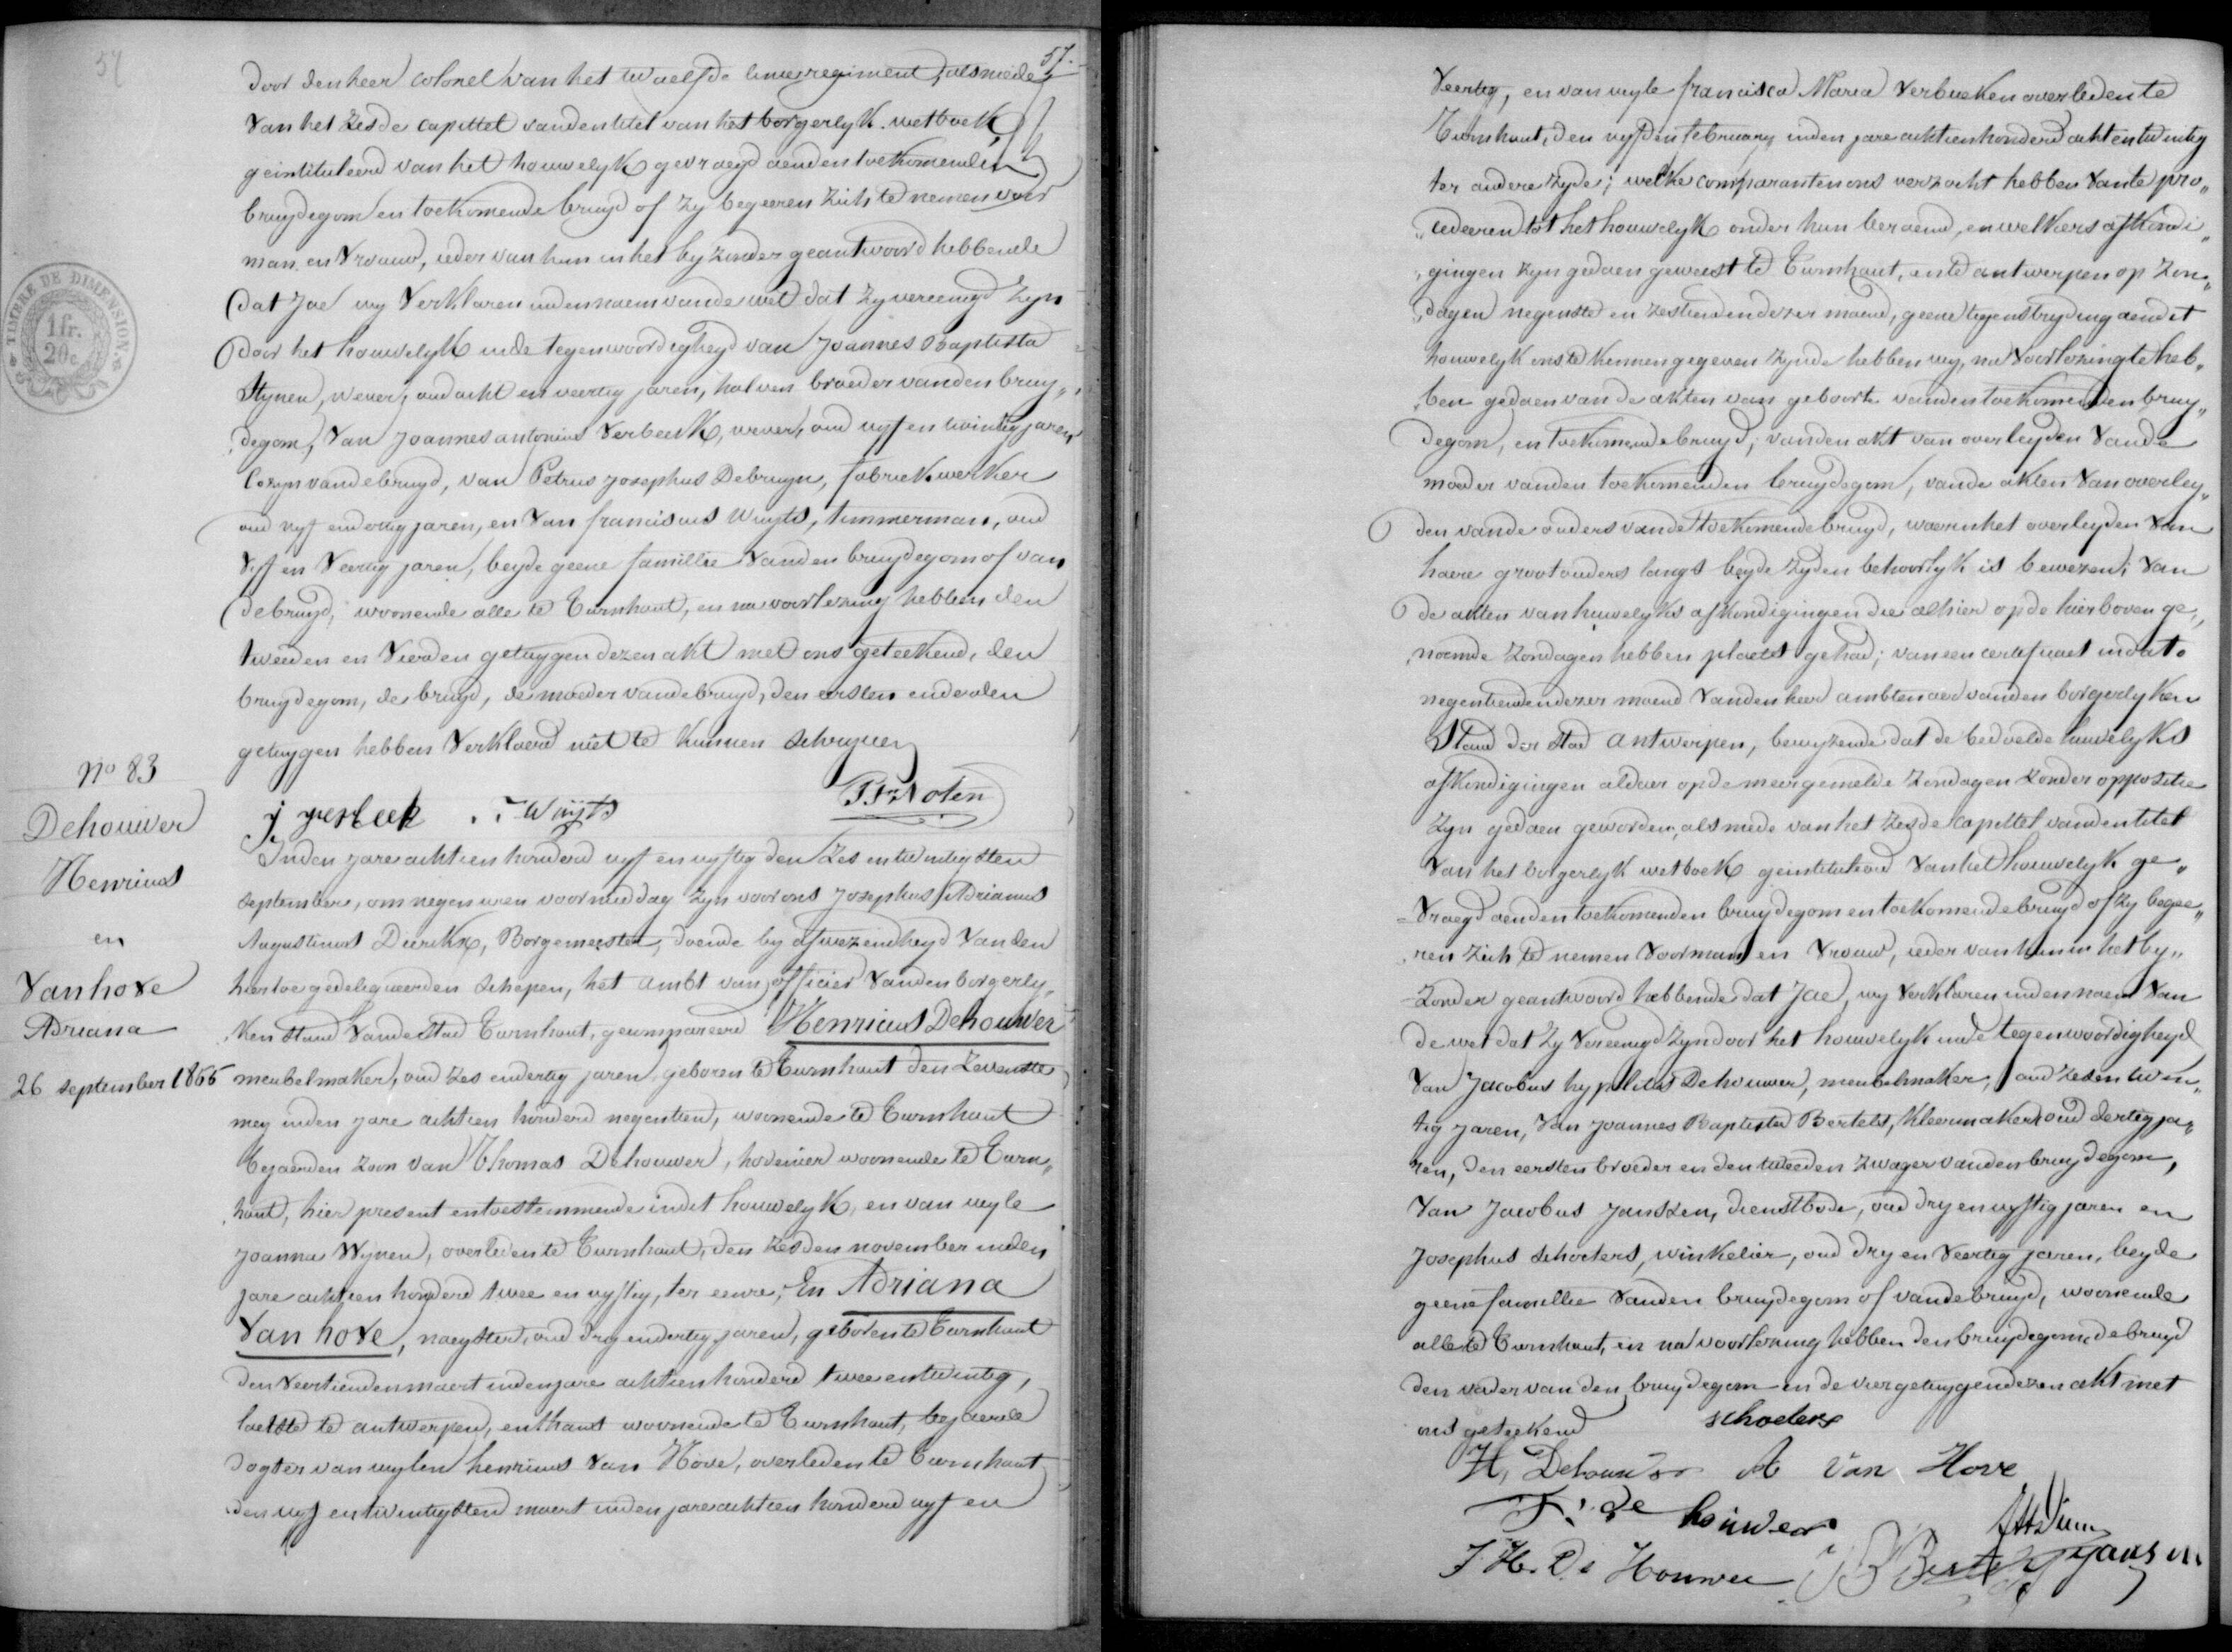 57
57.
door den heer colonel van het twaelfde linieregiment, alsmede
van het zesde capittel vanden titel van het borgerlyk wetboek,
geintituleerd van het houwelyk gevraegd aenden toekomenden
bruydegom en toekomende bruyd of zy begeeren zich te nemen voor
man en vrouw, ieder van hun in het byzonder geantwoord hebbende
dat Jae wy verklaren inden naem vande wet dat zy vereenigd zyn
door het houwelyk inde tegenwoordigheyd van Joannes Baptista
Stynen, wever, oud acht en veertig jaren, halven broeder vanden bruy„
„degom, van Joannes antonius Verbeek, wever, oud vyf en twintig jaren
Cozyn vande bruyd, van Petrus Josephus Debruyn, fabriekwerker
oud vyf en dertig jaren, en van franciscus Wuyts, timmerman, oud
vyf en veertig jaren, beyde geene famillie vanden bruydegom of van
de bruyd, woonende alle te Turnhout, en na voorlezing hebben den
tweeden en vierden getuygen dezen akt met ons geteekend, den
bruydegom, de bruyd, de moeder vande bruyd, den eersten en derden
getuygen hebben verklaerd niet te kunnen schryven
J verbeek F Wuyts Noten
TIMBRE DE DIMENSION
1 fr.
20 c
No 83
Dehouwer
Henricus
en
Vanhove
Adriana
26 september 1855
Inden jare achtien honderd vyf en vyftig den zes en twintigsten
september, om negen uren voormiddag zyn voor ons Josephus Adrianus
Augustinus Dierckx, Borgemeester, doende by afwezendheyd vanden
hiertoe gedelegueerden schepen, het ambt van officier vanden borgerly„
„ken stand vande stad Turnhout, gecompareerd Henricus Dehouwer
meubelmaker, oud zes en dertig jaren, geboren te Turnhout den zevensten
mey inden jare achtien honderd negentien, woonende te Turnhout
bejaerden zoon van Thomas Dehouwer, hovenier woonende te Turn„
„hout, hier present en toestemmende in dit houwelyk, en van wyle
Joanna Wynen, overleden te Turnhout, den zesden november inden
jare achtien honderd twee en vyftig, ter eenre; En Adriana
Van hove, naeyster, oud dry en dertig jaren, geboren te Turnhout
den veertienden maert inden jare achtien honderd twee en twintig,
laetste te antwerpen, en thans woonende te Turnhout, bejaerde
dogter van wylen henricus Van Hove, overleden te Turnhout
den vyf en twintigsten maert inden jare achtien honderd vyf en
veertig, en van wyle francisca Maria Verbueken overleden te
Turnhout, den vyfden february inden jare achtien honderd acht en twintig
ter andere zyde; welke comparanten ons verzocht hebben van te pro„
„cedeeren tot het houwelyk onder hun beraemd, en welkers afkondi„
„gingen zyn gedaen geweest te Turnhout, en te antwerpen op zon„
„dagen negensten en zestienden dezer maend, geene tegenstryding aen dit
houwelyk ons te kennen gegeven zynde hebben wy, na voorlezing te heb„
„ben gedaen van de akten van geboorte vanden toekomenden bruy„
degom, en toekomende bruyd, vanden akt van overlyden vande
moeder vanden toekomenden bruydegom, vande akten van overly„
den vande ouders vande toekomende bruyd, waerin het overlyden van
haere grootouders langs beyde zyden behoorlyk is bewezen; van
de akten van huwelyks afkondigingen die alhier op de hierboven ge„
„noemde zondagen hebben plaets gehad; van een certificaet in dato
negentienden dezer maend vanden heer ambtenaer vanden borgerlyken
Stand der stad antwerpen, bewyzende dat de bedoelde huwelyks
afkondigingen aldaer op de meergemelde zondagen zonder oppositie
zyn gedaen geworden, alsmede van het zesde capittel vanden titel
van het borgerlyk wetboek geintituleerd van het houwelyk ge„
„vraegd aenden toekomenden bruydegom en toekomende bruyd of zy begee„
„ren zich te nemen voor man en vrouw, ieder van hun in het by„
„zonder geantwoord hebbende dat Jae, wy verklaren inden naem van
de wet dat zy vereenigd zyn door het houwelyk inde tegenwoordigheyd
van Jacobus hypolitus Dehouwer, meubelmaker, oud zes en twin„
tig jaren, van Joannes Baptista Bertels, kleermaker, oud dertig ja„
ren, den eersten broeder en den tweeden zwager vanden bruydegom,
van Jacobus Janssen, dienstbode, oud dry en vyftig jaren en
Josephus Schoeters, winkelier, oud dry en veertig jaren, beyde
geene famillie vanden bruydegom of vande bruyd, woonende
alle te Turnhout, en na voorlezing hebben den bruydegom, de bruyd
den vader van den bruydegom en de vier getuygen dezen akt met
ons geteekend
schoeters
H, Dehouwer A Van Hove
T. de houwer
J H. De Houwer JB Bertels Jansen